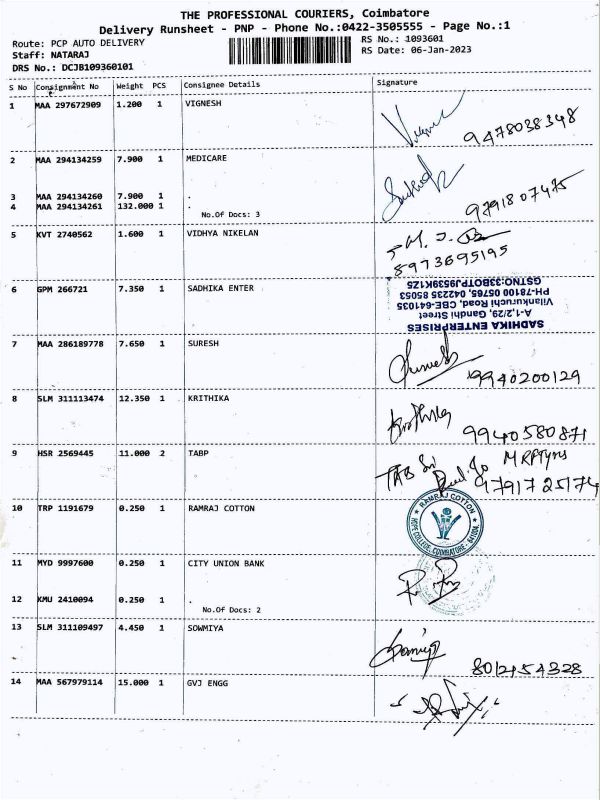 THE PROFESSIONAL COURIERS, Coimbatore
Delivery Runsheet - PNP - Phone No.:0422-3505555 - Page No.:1
Route: PCP AUTO DELIVERY
RS No.: 1093601
Staff: NATARAJ
RS Date: 06-Jan-2023
DRS No.: DCJB109360101
S No Consignment No Weight PCS Consignee Details Signature
1 MAA 297672909 1.200 1 VIGNESH
9478038348
2 MAA 294134259 7.900 1 MEDICARE
3 MAA 294134260 7.900 1 .
4 MAA 294134261 132.000 1 .
9791807475
No.Of Docs: 3
5 KVT 2740562 1.600 1 VIDHYA NIKELAN
8973695195
6 GPM 266721 7.350 1 SADHIKA ENTER
SADHIKA ENTERPRISES
A-1,2/29, Gandhi Street
Vilankuruchi Road, CBE-641035
PH-78100 05765, 042235 85053
GSTNO:33BOTPJ9539K1Z5
7 MAA 286189778 7.650 1 SURESH
9940200129
8 SLM 311113474 12.350 1 KRITHIKA
Krithika
9940580871
9 HSR 2569445 11.000 2 TABP
TAB Sri
MRP Tyres
9791725174
10 TRP 1191679 0.250 1 RAMRAJ COTTON
RAMRAJ COTTON
HOPE COLLEGE, COIMBATORE - 641004.
11 MYD 9997600 0.250 1 CITY UNION BANK
12 KMU 2410094 0.250 1 .
No.Of Docs: 2
13 SLM 311109497 4.450 1 SOWMIYA
8012454328
14 MAA 567979114 15.000 1 GVJ ENGG